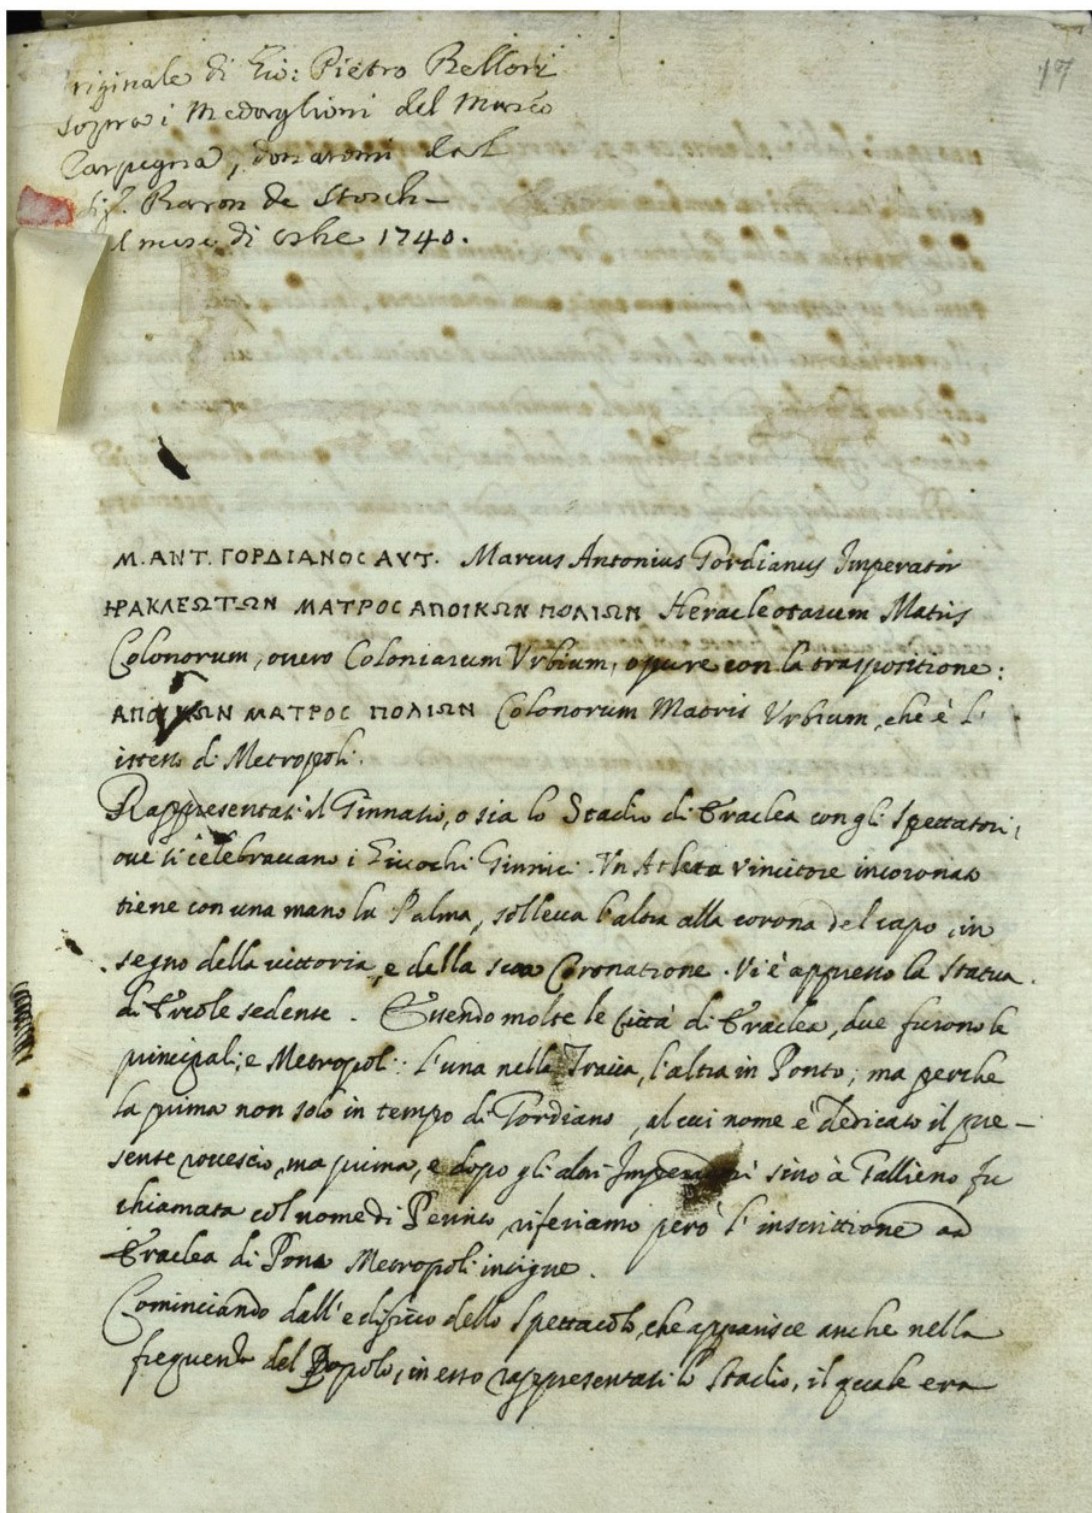 17
riginale di Gio: Pietro Bellori
sopra i Medaglioni del Museo
Carpegna, donatomi dal
Sigr. Baron de Stosch
il mese di 8bre 1740.
Μ. ΑΝΤ. ΓΟΡΔΙΑΝΟC ΑΥΤ. Marcus Antonius Gordianus Imperator
ΗΡΑΚΛΕΩΤΩΝ ΜΑΤΡΟC ΑΠΟΙΚΩΝ ΠΟΛΙΩΝ Heracleotarum Matris
Colonorum, ouero Coloniarum Vrbium, opure con la traspositione:
ΑΠΟΙΚΩΝ ΜΑΤΡΟC ΠΟΛΙΩΝ Colonorum Matris Vrbium, che è l'
istesso di Metropoli.
Rappresentasi il Ginnasio, o sia lo Stadio di Eraclea con gli Spettatori,
oue si celebrauano i Giuochi Ginnici. Vn Atleta vincitore incoronato
tiene con una mano la Palma, solleua l'altra alla corona del capo, in
segno della uittoria, e della sua Coronatione. Vi è appresso la Statua
di Ercole sedente. Essendo molte le Città di Eraclea, due furono le
principali, e Metropoli: l'una nella Tracia, l'altra in Ponto; ma perche
la prima non solo in tempo di Gordiano, al cui nome è dedicato il pre-
sente rouescio, ma prima, e dopo gli altri Imperadori sino à Gallieno fu
chiamata col nome di Perinto, riferiamo però l'inscrittione ad
Eraclea di Ponto Metropoli insigne.
Cominciando dall'edificio dello Spettacolo, che apparisce anche nella
frequenza del Popolo, in esso rappresentasi lo Stadio, il quale era